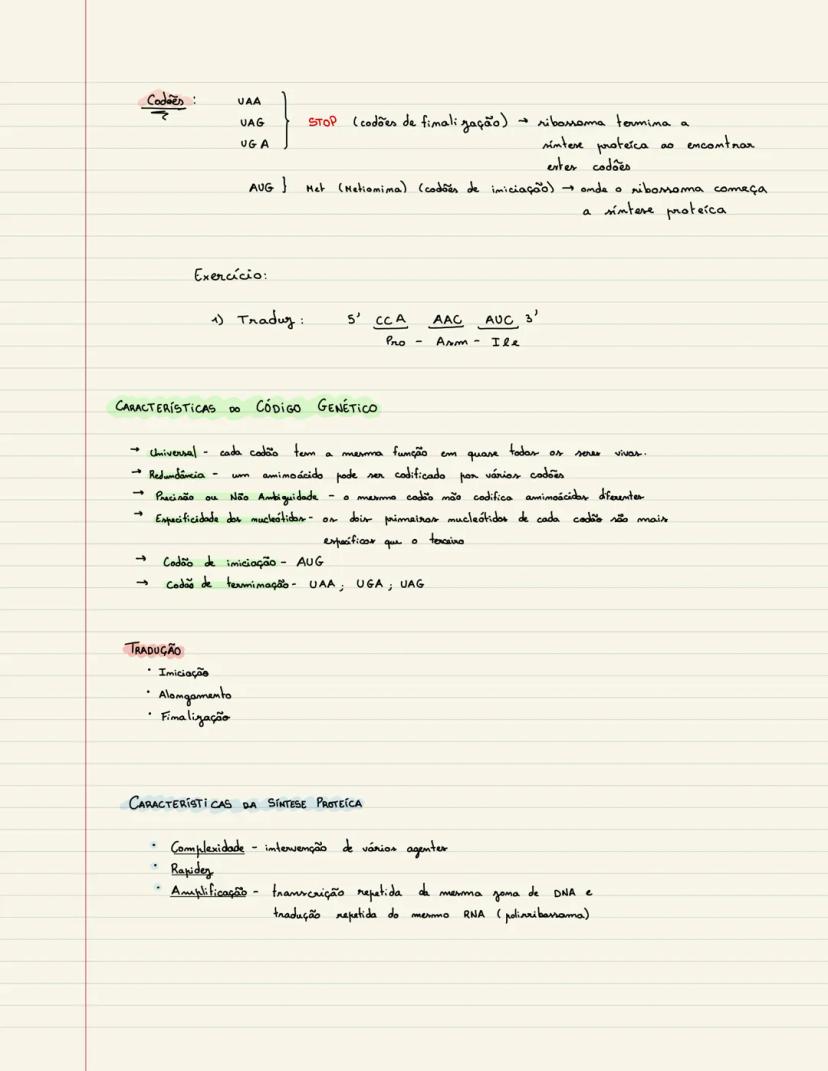 Codões: UAA
UAG STOP (codões de finalização) → ribossoma termina a
UGA síntese proteíca ao encontrar
estes codões
AUG } Met (Metionina) (codões de iniciação) → onde o ribossoma começa
a síntese proteíca
Exercício:
1) Traduz: 5' CCA AAC AUC 3'
Pro - Asn - Ile
CARACTERÍSTICAS DO CÓDIGO GENÉTICO
→ Universal - cada codão tem a mesma função em quase todos os seres vivos.
→ Redundância - um aminoácido pode ser codificado por vários codões
→ Precisão ou Não Ambiguidade - o mesmo codão não codifica aminoácidos diferentes
→ Especificidade dos nucleótidos - os dois primeiros nucleótidos de cada codão são mais
específicos que o terceiro
→ Codão de iniciação - AUG
→ Codão de terminação - UAA ; UGA ; UAG
TRADUÇÃO
• Iniciação
• Alongamento
• Finalização
CARACTERÍSTICAS DA SÍNTESE PROTEÍCA
• Complexidade - intervenção de vários agentes
• Rapidez
• Amplificação - transcrição repetida da mesma zona de DNA e
tradução repetida do mesmo RNA (polirribossoma)